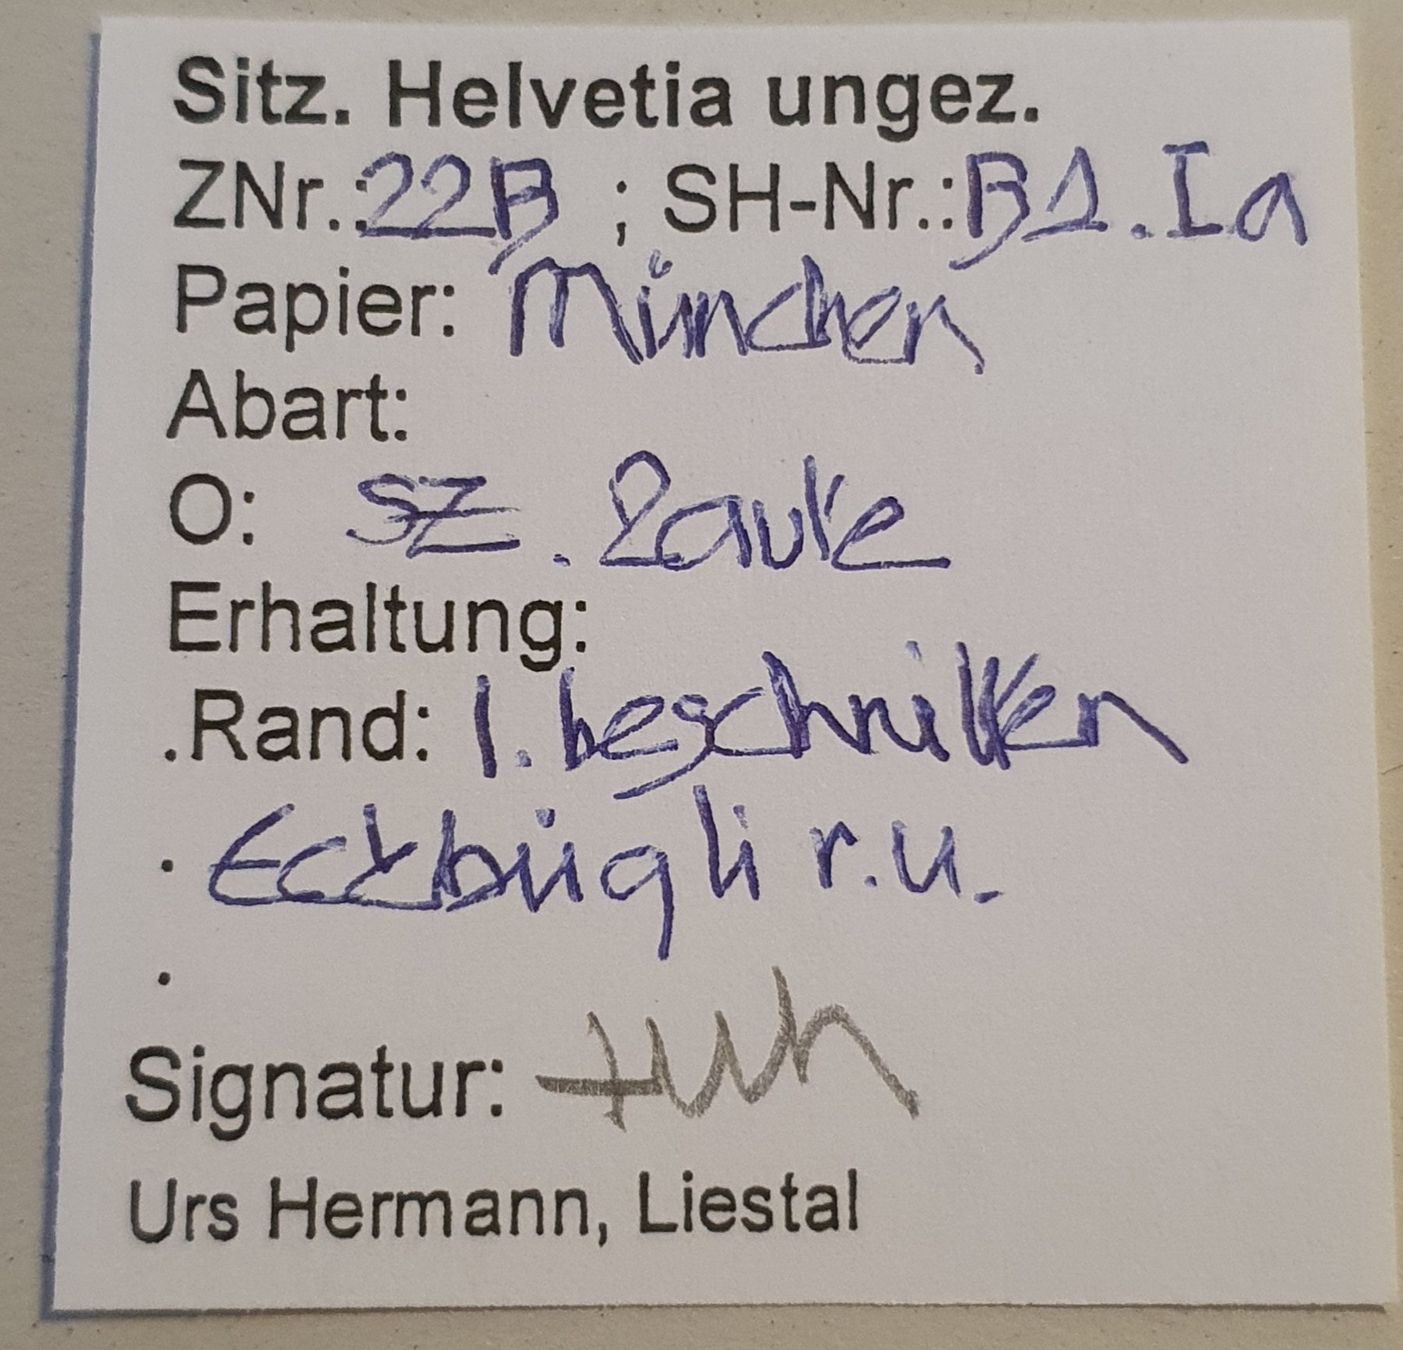 Sitz. Helvetia ungez.
ZNr.:22B ; SH-Nr.:B1.Ia
Papier: München
Abart:
O: sz. Raute
Erhaltung:
.Rand: l. beschnitten
. Eckbügli r.u.
.
Signatur:
Urs Hermann, Liestal